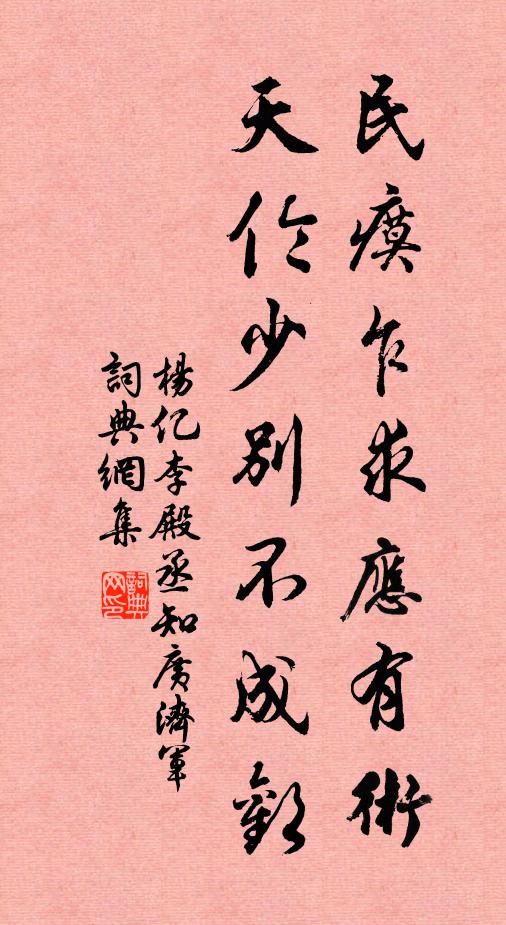 民瘼乍求應有術
天伦少別不成歡
楊亿李殿丞知廣濟軍
詞典網集
詞典网印